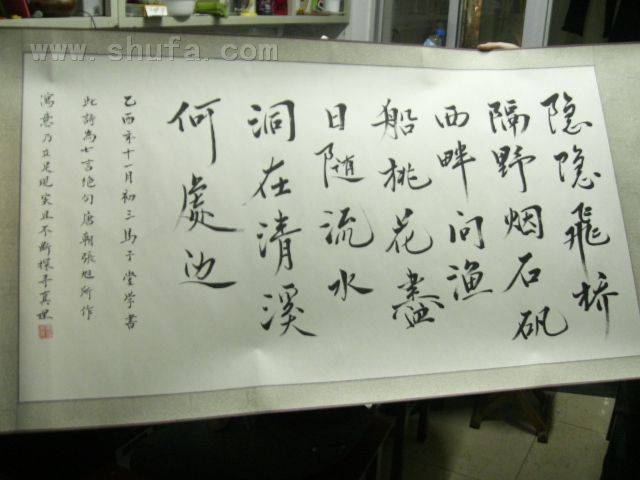 www.shufa.com
隐隐飛桥
隔野烟石矶
西畔问渔
船桃花盡
日随流水
洞在清溪
何處边
乙酉年十一月初三馬子堂学書
此詩为七言绝句唐朝張旭所作
寓意乃立足現实且不断探寻真理